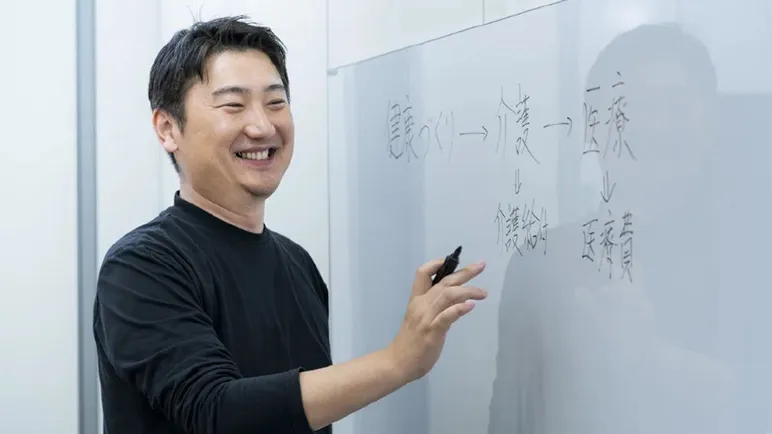 健康づくり→介護→医療
↓ ↓
介護給付 医療費